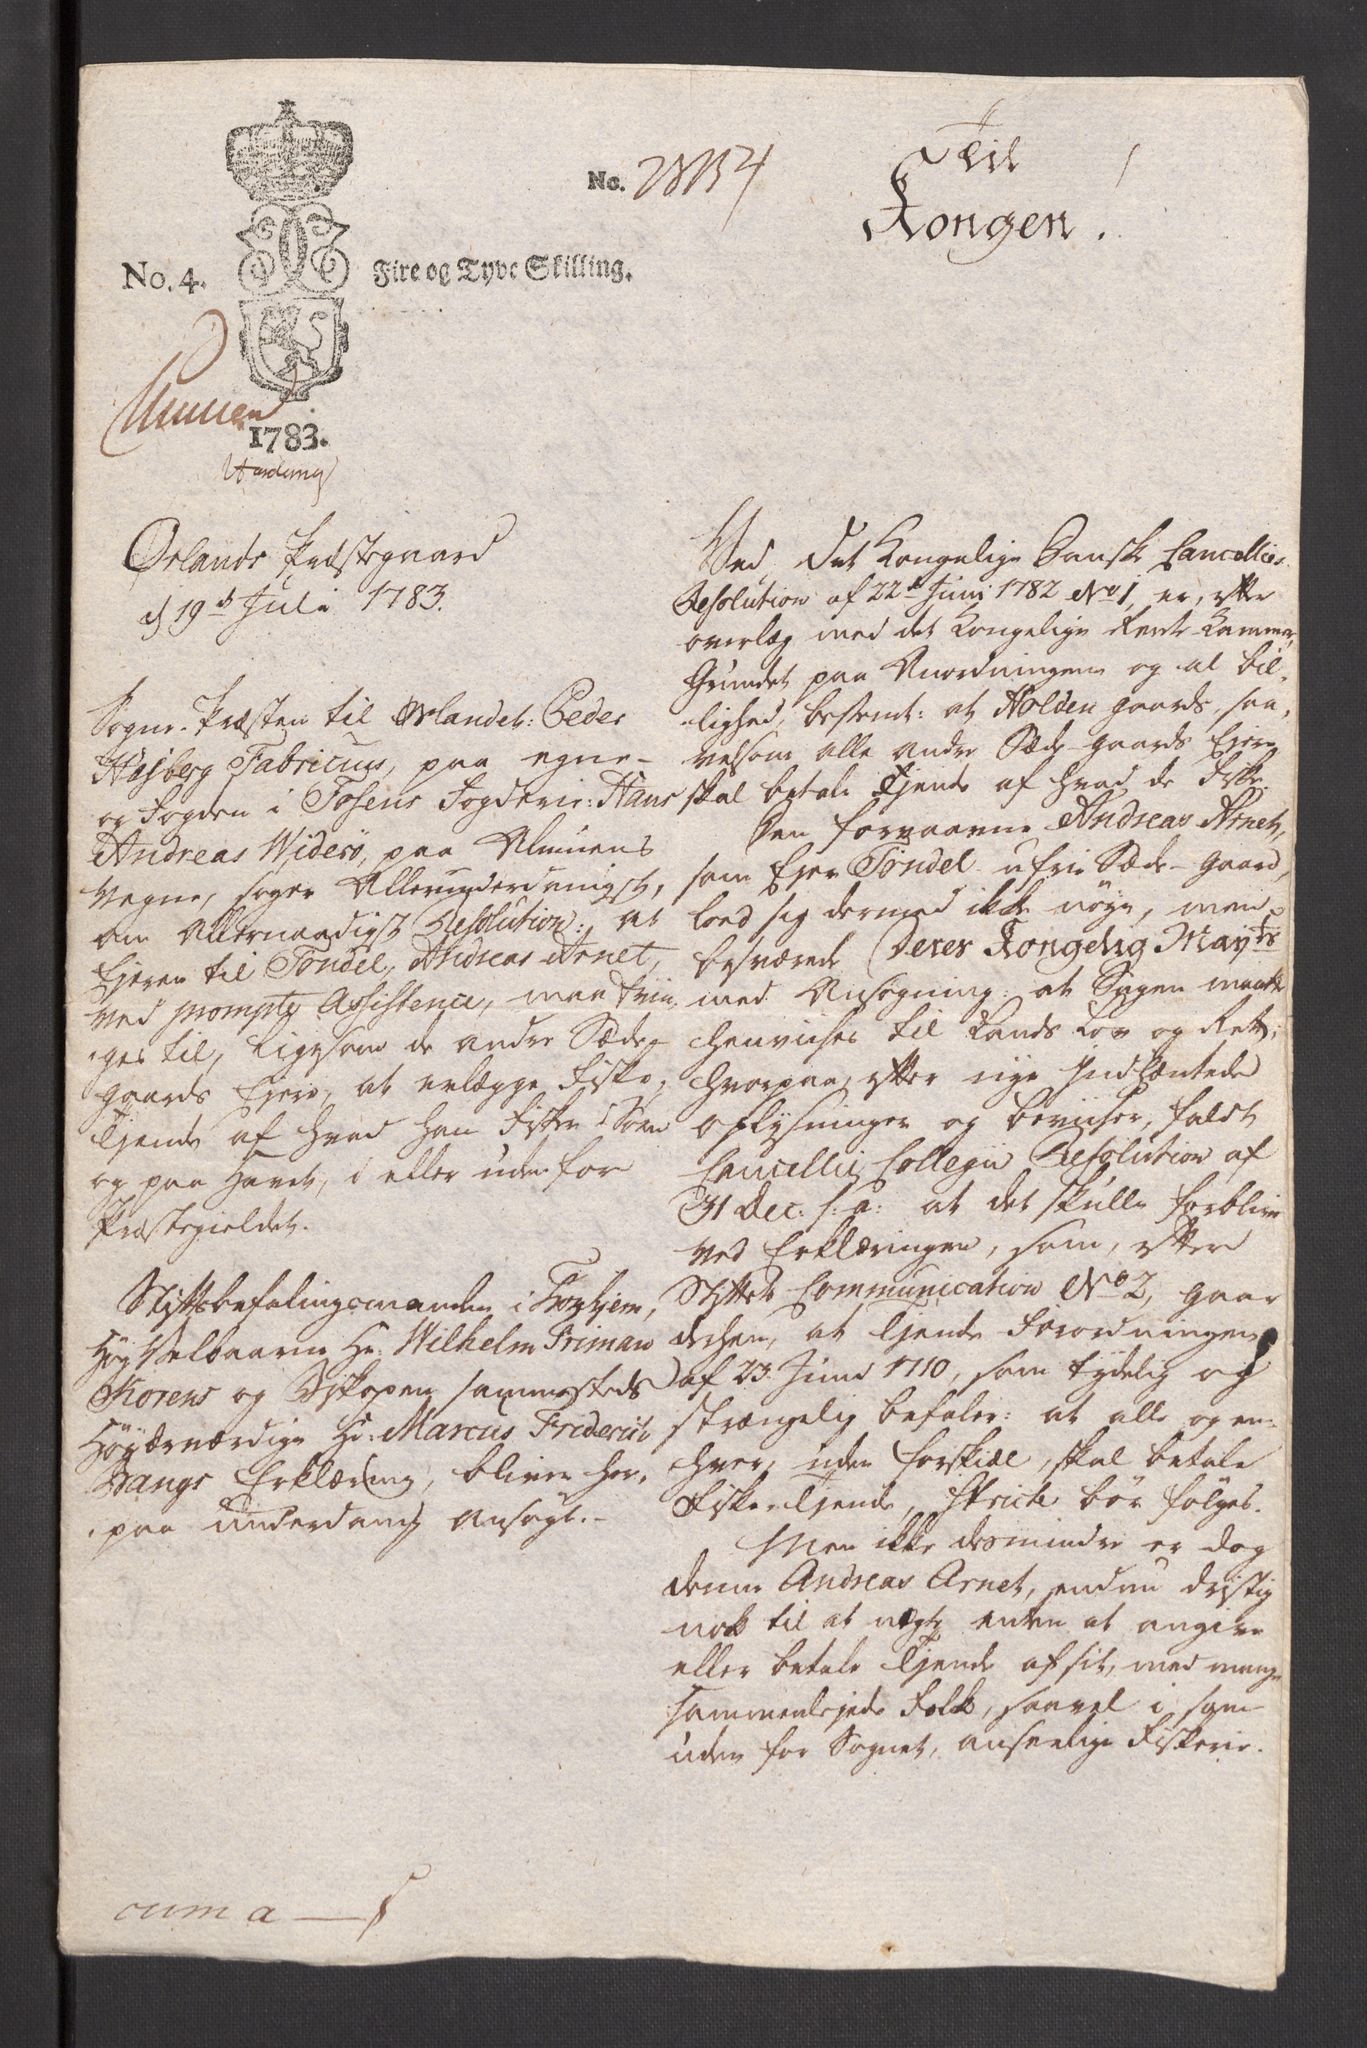 Til
Kongen.
No.
No. 4.
Fire og Tyve Skilling.
1783.
Ørlands Præstegaard
d 19de Juli 1783.
Sogne-Præsten til Ørlandet: Peder
Højberg Fabricius, paa egne-
og Fogden i Fosens Fogderie: Hans
Andreas Widerö, paa Almuens
Vegne, søger Allerunderdanigst,
om Allernaadigst Resolution: at
Ejeren til Töndel, Andreas Arnet,
ved prompte Assistence, maa tvin-
ges til, ligesom de andre Sæde-
gaards Ejere, at erlægge Fiske-
Tjende af hvad han fisker i Søen
og paa Havet, i eller uden for
Præstegieldet.
Stiftsbefalingsmanden i Tronhjem,
HøyVelbaarne Hr: Wilhelm Friman
Korens og Biskopen sammesteds
Høyærværdige Hr: Marcus Friderich
Bangs Erklæring, bliver her-
paa underdanig ansøgt.-
Ved det Kongelige Danske Cancellies
Resolution af 22de Juni 1782 No 1, er, efter
overlæg med det Kongelige Rente Kammer,
Grundet paa Anordningerne og al bil-
lighed, bestemt: at Holden gaards, saa-
velsom alle andre Sæde-gaards Ejere
skal betale Tjende af hvad de fiske.
Den forvaarne Andreas Arnet,
som Ejer Töndel ufrie Sæde-gaard,
lod sig dermed ikke nöye, men
besværede Deres Kongelig Mayts
med Ansøgning: at Sagen maatte
henvises til Lands Lov og Rett;
hvorpaa, efter nye Indhæntede
oplysninger og beviiser, faldt
Cancellie Collegii Resolution af
31 Dec: s: a: at det skulle forblive
ved Erklæringen, som, efter
Stiftets Communication No 2, gaar
derhen, at Tjende Forordningen
af 23 Junii 1710, som tydelig og
strængelig befaler: at alle og en-
hver, uden forskiæl, skal betale
Fiske-Tjende, strictè bör følges.
Men ikke desmindre er dog
denne Andreas Arnet, endnu dristig
nok til at nægte enten at angive
eller betale Tjende af sit, med mange
sammenlejede Folk, saavel i som
uden for Sognet, anseelige Fiskerie.
cum a